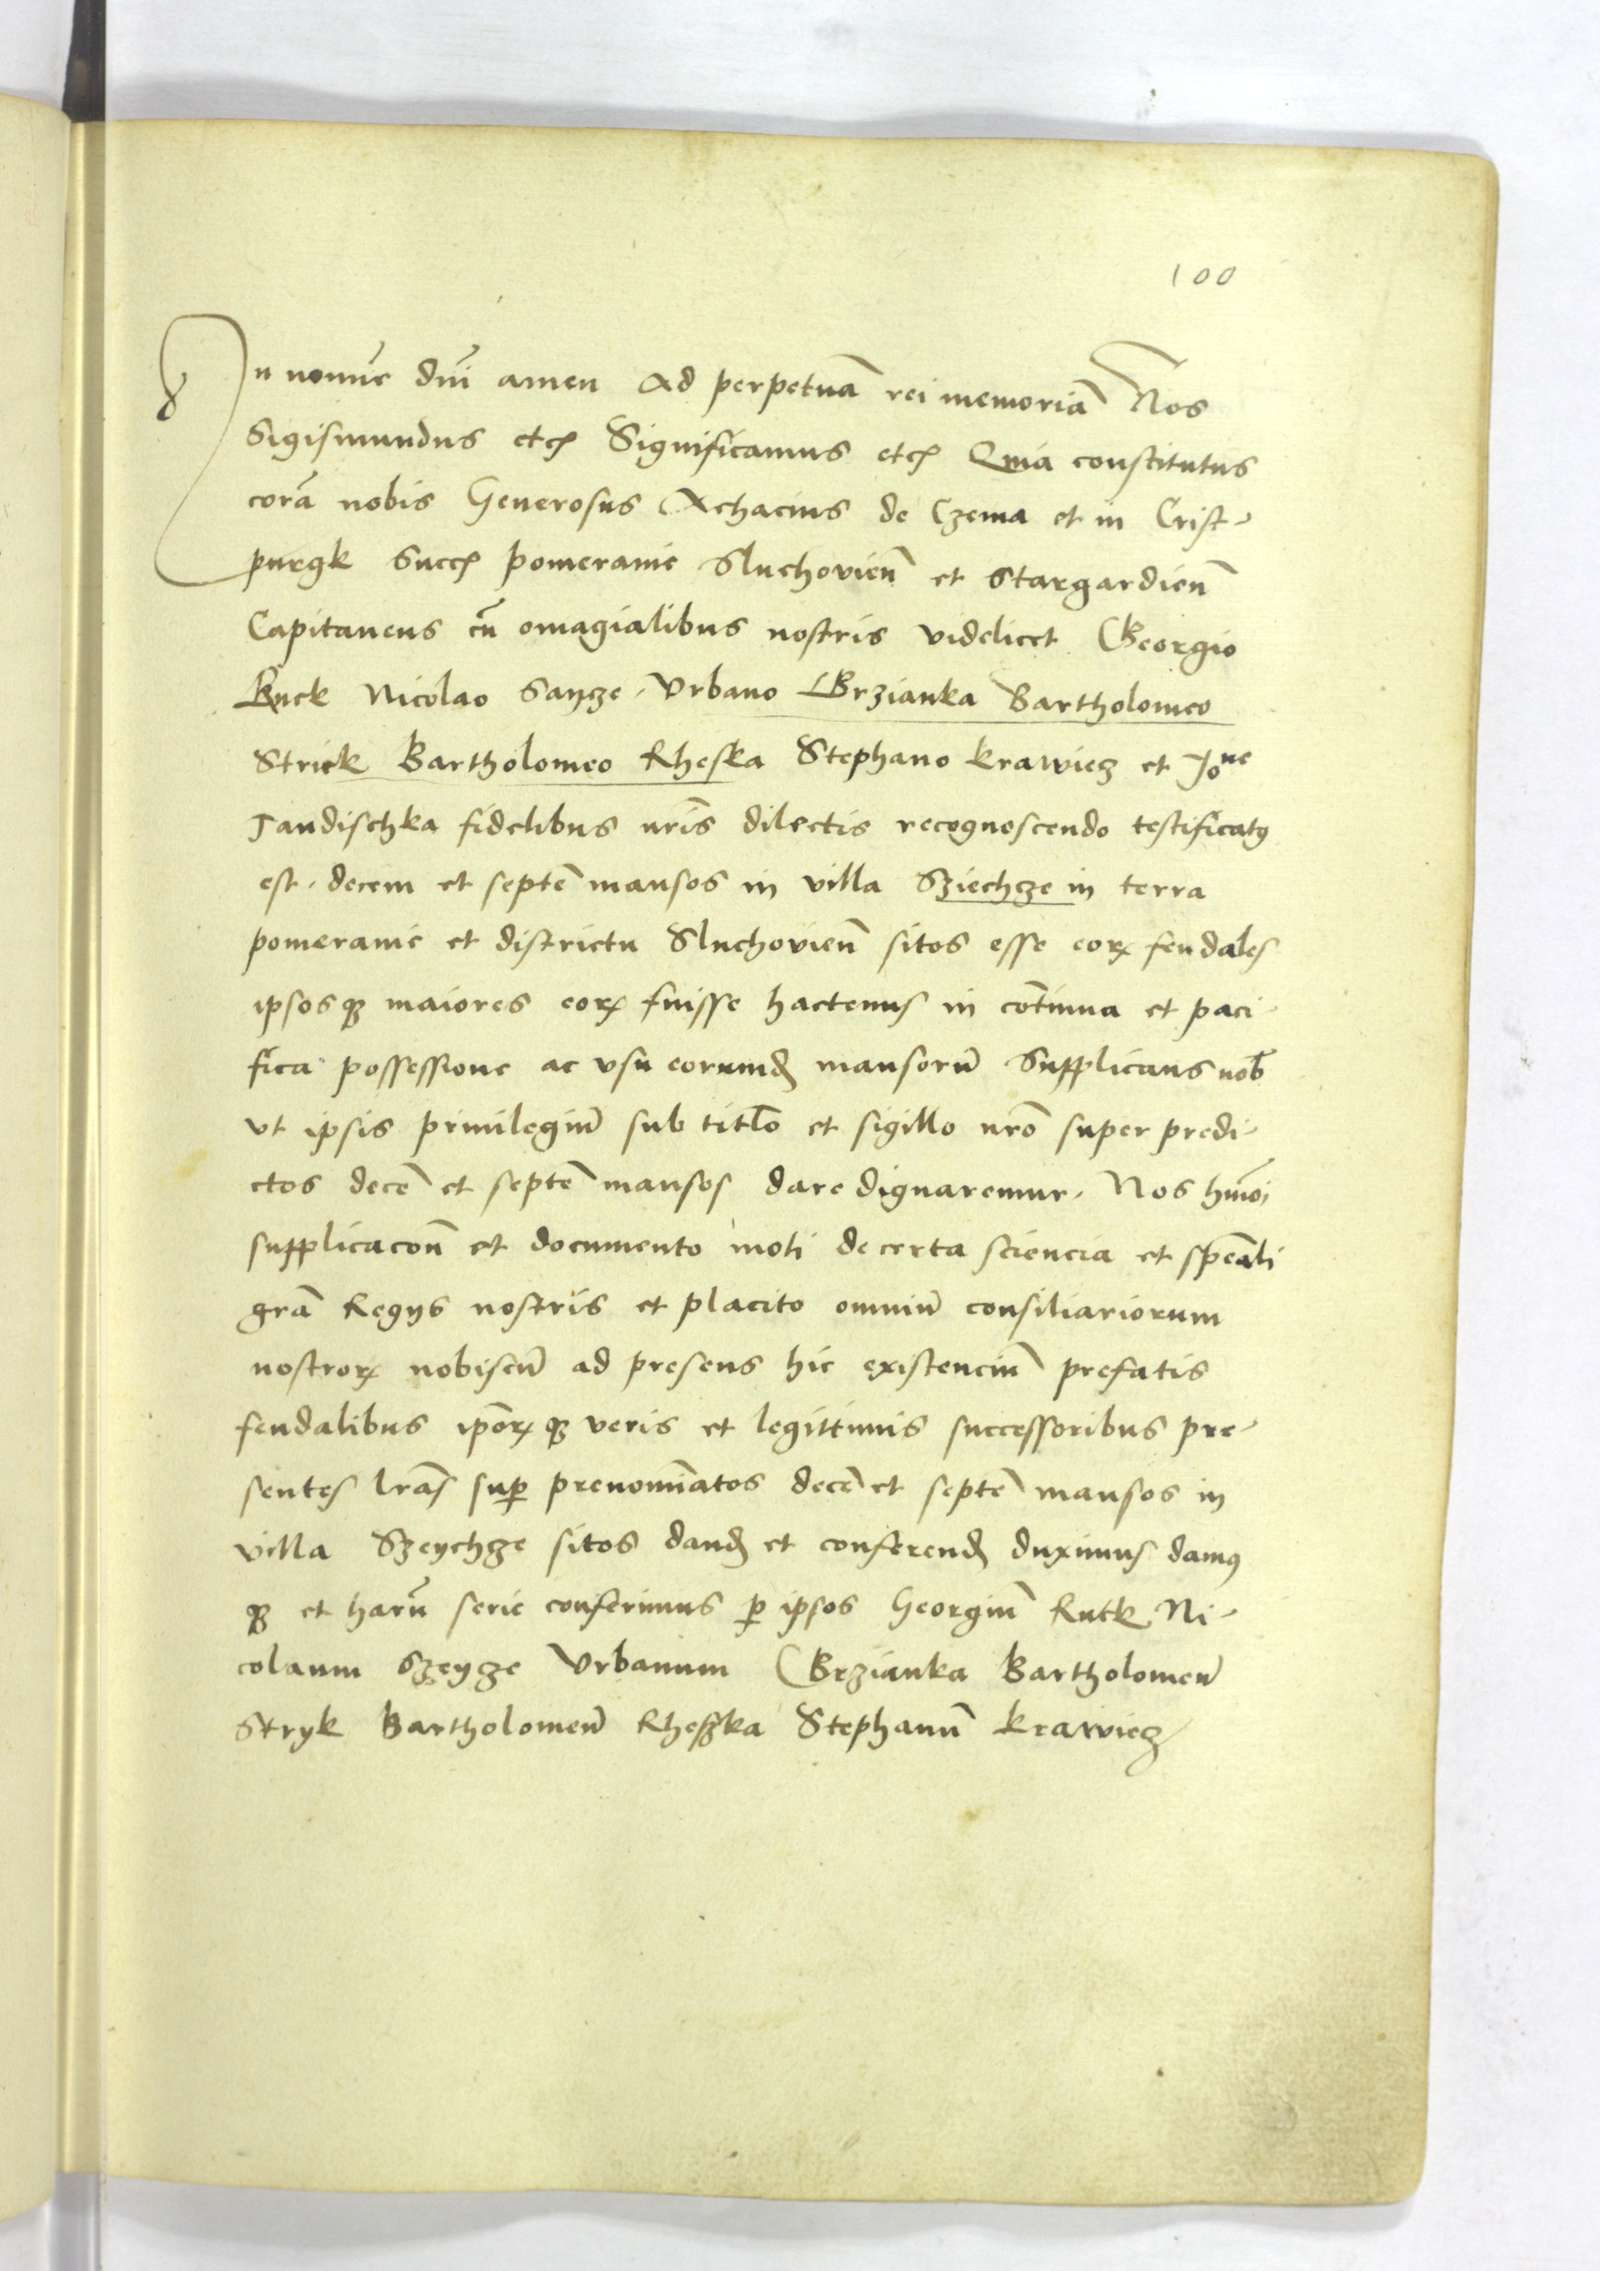 100
In nomīe dn̄i amen Ad perpetuā rei memoriā Nos
Sigismundus etcꝭ Significamus etcꝭ Quia constitutus
corā nobis Generosus Achacius de Czema et in Crist-
purgk Succꝭ pomeranie Sluchovien̄ et Stargardien̄
Capitaneus cū omagialibus nostris videlicet Georgio
Ruck Nicolao Saycze Urbano Brzianka Bartholomeo
Strick Bartholomeo Rheska Stephano Krawiecz et Jone
Jandischka fidelibus nr̄is dilectis recognoscendo testificatꝰ
est. decem et septē mansos in villa Sziechcze in terra
pomeranie et districtu Sluchovien̄ sitos esse eoꝝ feudales
ipsosqꝫ maiores eoꝝ fuisse hactenus in cōtinua et paci-
fica possessione ac usu eorumdꝫ mansorū Supplicans nob̄
ut ipsis priuilegiū sub titl̄o et sigillo nr̄o super predi-
ctos decē et septē mansos dare dignaremur. Nos hmōi
supplicacon̄ et documento moti de certa sciencia et sp̄eali
grā Regijs nostris et placito omniū consiliariorum
nostroꝝ nobiscū ad presens hic existenciū prefatis
feudalibus ip̄oꝝqꝫ veris et legittimis successoribus pre-
sentes lr̄as suꝑ prenomīatos decē et septē mansos in
villa Szeychcze sitos dandꝫ et conferendꝫ duximus damꝰ
qꝫ et harū serie conferimus ꝑ ipsos Georgiū Rutk Ni-
colaum Szeycze Urbanum Brzianka Bartholomeū
Stryk Bartholomeū Rheszka Stephanū Krawiecz